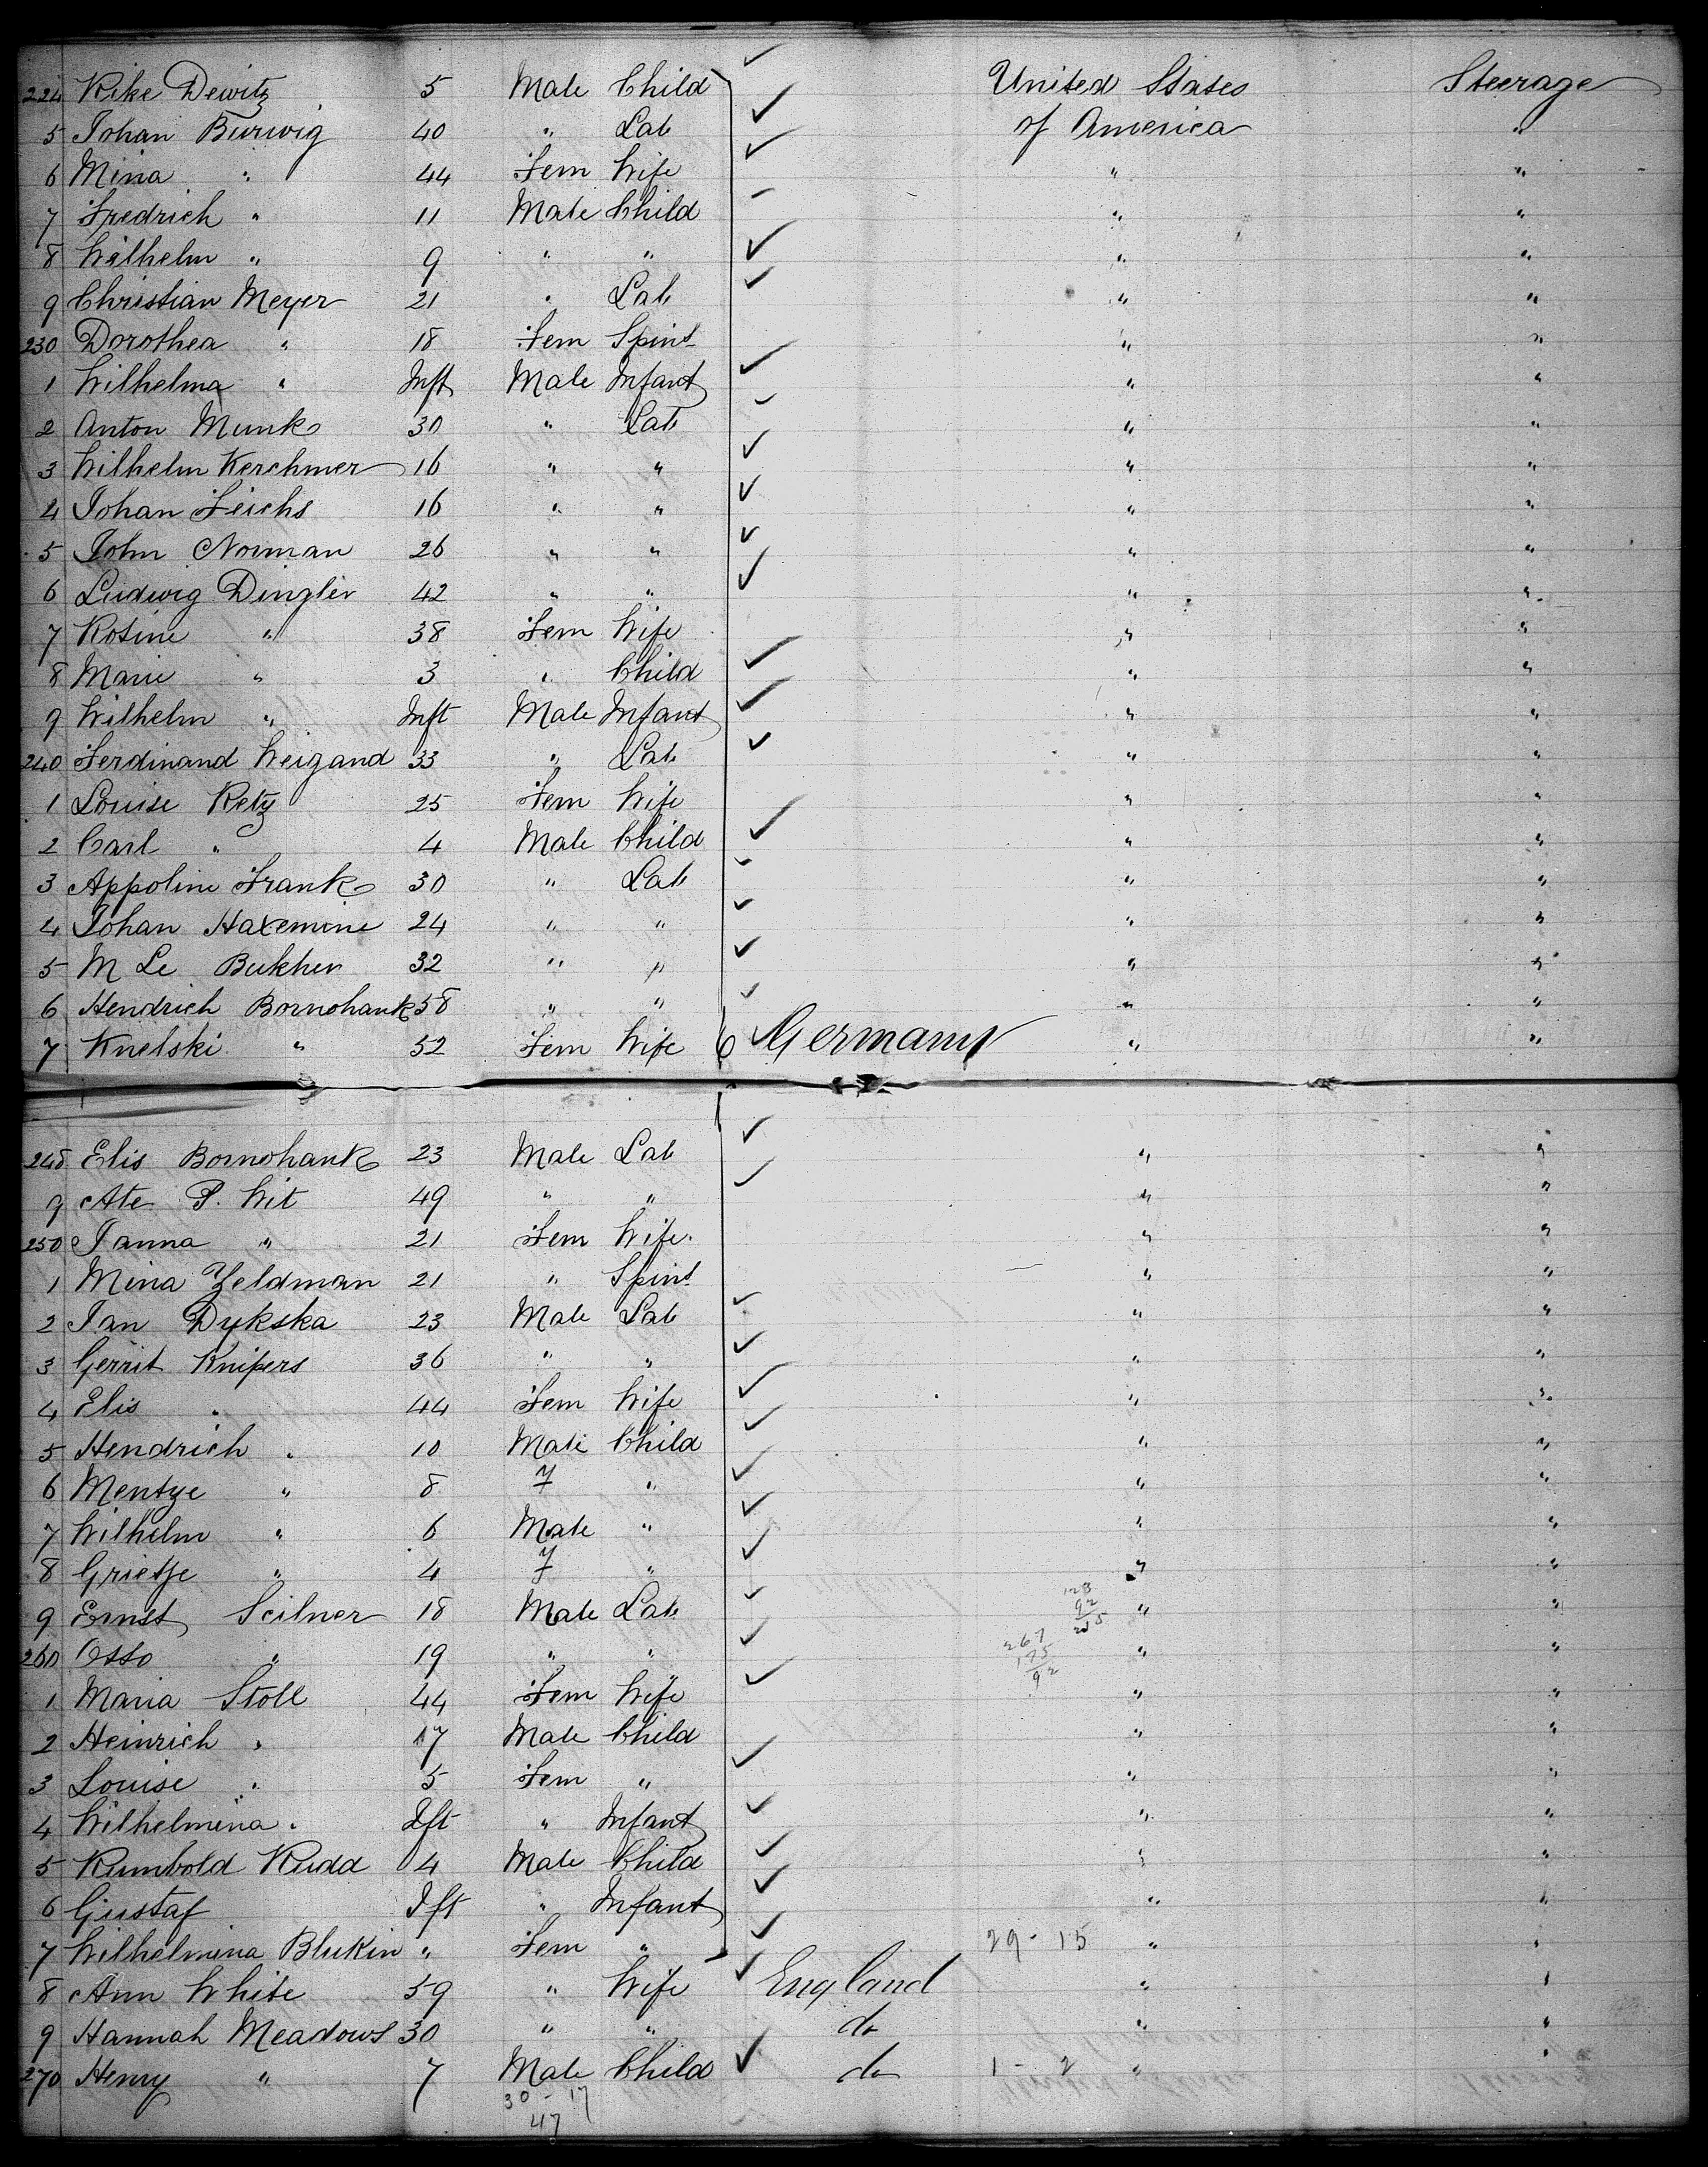 224 Rike Dewitz 5 Male Child United States Steerage
5 Johan Burwig 40 " Lab of America "
6 Mina " 44 Fem Wife " "
7 Fredrich " 11 Male Child " "
8 Wilhelm " 9 " " " "
9 Christian Meyer 21 " Lab " "
230 Dorothea " 18 Fem Spinst " "
1 Wilhelma " Inft Male Infant " "
2 Anton Munk 30 " Lab " "
3 Wilhelm Kerchmer 16 " " " "
4 Johan Feichs 16 " " " "
5 John Norman 26 " " " "
6 Ludwig Dingler 42 " " " "
7 Rosine " 38 Fem Wife " "
8 Marie " 3 " Child " "
9 Wilhelm " Inft Male Infant " "
240 Ferdinand Weigand 33 " Lab " "
1 Louise Retz 25 Fem Wife " "
2 Carl " 4 Male Child " "
3 Appoline Frank 30 " Lab " "
4 Johan Haxemine 24 " " " "
5 M Le Bukher 32 " " " "
6 Hendrich Bornohank 58 " " " "
7 Knelski " 52 Fem Wife Germany " "
248 Elis Bornohank 23 Male Lab " "
9 Ate P. Wit 49 " " " "
250 Janna " 21 Fem Wife " "
1 Mina Zeldman 21 " Spinst " "
2 Jan Dykska 23 Male Lab " "
3 Gerrit Knipers 36 " " " "
4 Elis " 44 Fem Wife " "
5 Hendrich " 10 Male Child " "
6 Mentze " 8 F " " "
7 Wilhelm " 6 Male " " "
8 Grietje " 4 F " " "
9 Ernst Scilner 18 Male Lab " "
260 Otto " 19 " " " "
1 Maria Stoll 44 Fem Wife " "
2 Heinrich " 17 Male Child " "
3 Louise " 5 Fem " " "
4 Wilhelmina " Ift " Infant " "
5 Rumbold Rudd 4 Male Child " "
6 Gustaf Ift " Infant " "
7 Wilhelmina Blukin " Fem " 29-15 " "
8 Ann White 59 " Wife England " "
9 Hannah Meadows 30 " " do " "
270 Henry " 7 Male Child do 1-2 " "
30-17
47